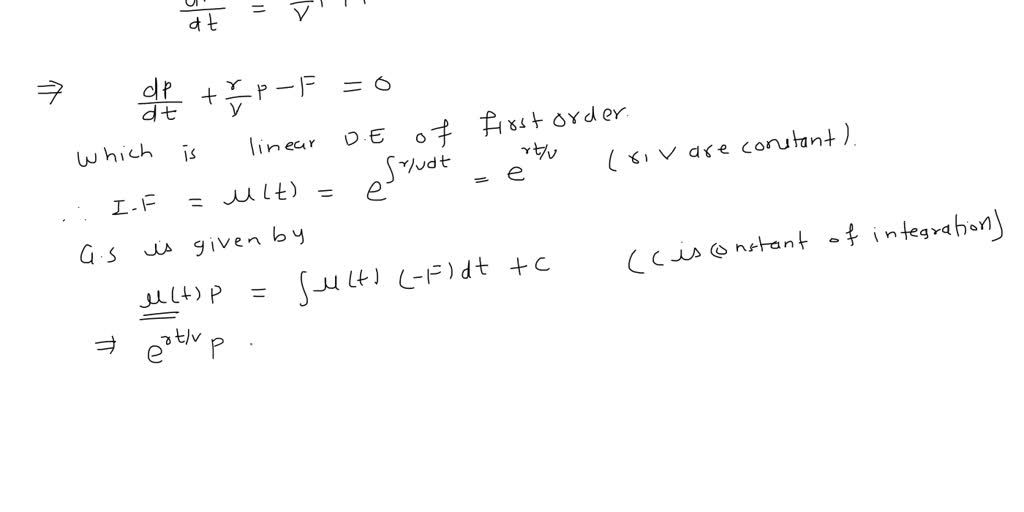 dt = v
⇒ dp/dt + r/v p - F = 0
which is linear D.E of first order.
∴ I.F = μ(t) = e^∫r/v dt = e^rt/v (r, v are constant).
G.S is given by
μ(t) p = ∫ μ(t) (-F) dt + c (c is constant of integration)
⇒ e^rt/v p .